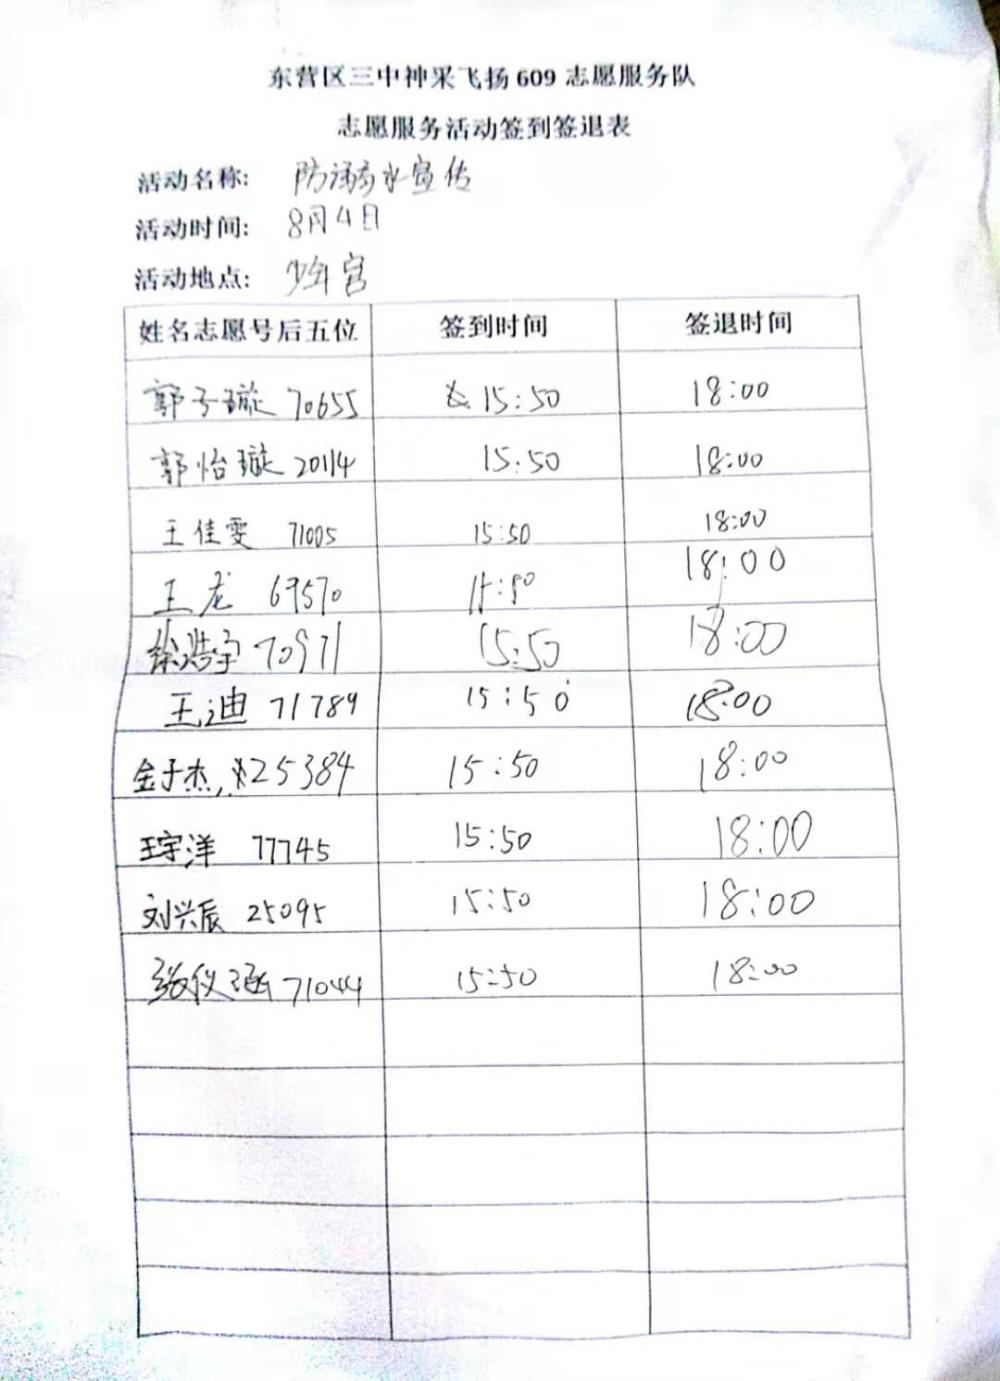 东营区三中神采飞扬 609 志愿服务队
志愿服务活动签到签退表
活动名称: 防溺水宣传
活动时间: 8月4日
活动地点: 少年宫
姓名志愿号后五位 签到时间 签退时间
郭子璇 70655 15:50 18:00
郭怡璇 20114 15:50 18:00
王佳雯 71005 15:50 18:00
王龙 69570 15:50 18:00
徐浩宇 70971 15:50 18:00
王迪 71789 15:50 18:00
金于杰, 25384 15:50 18:00
王宇洋 77745 15:50 18:00
刘兴辰 25095 15:50 18:00
张仪涵 71044 15:50 18:00